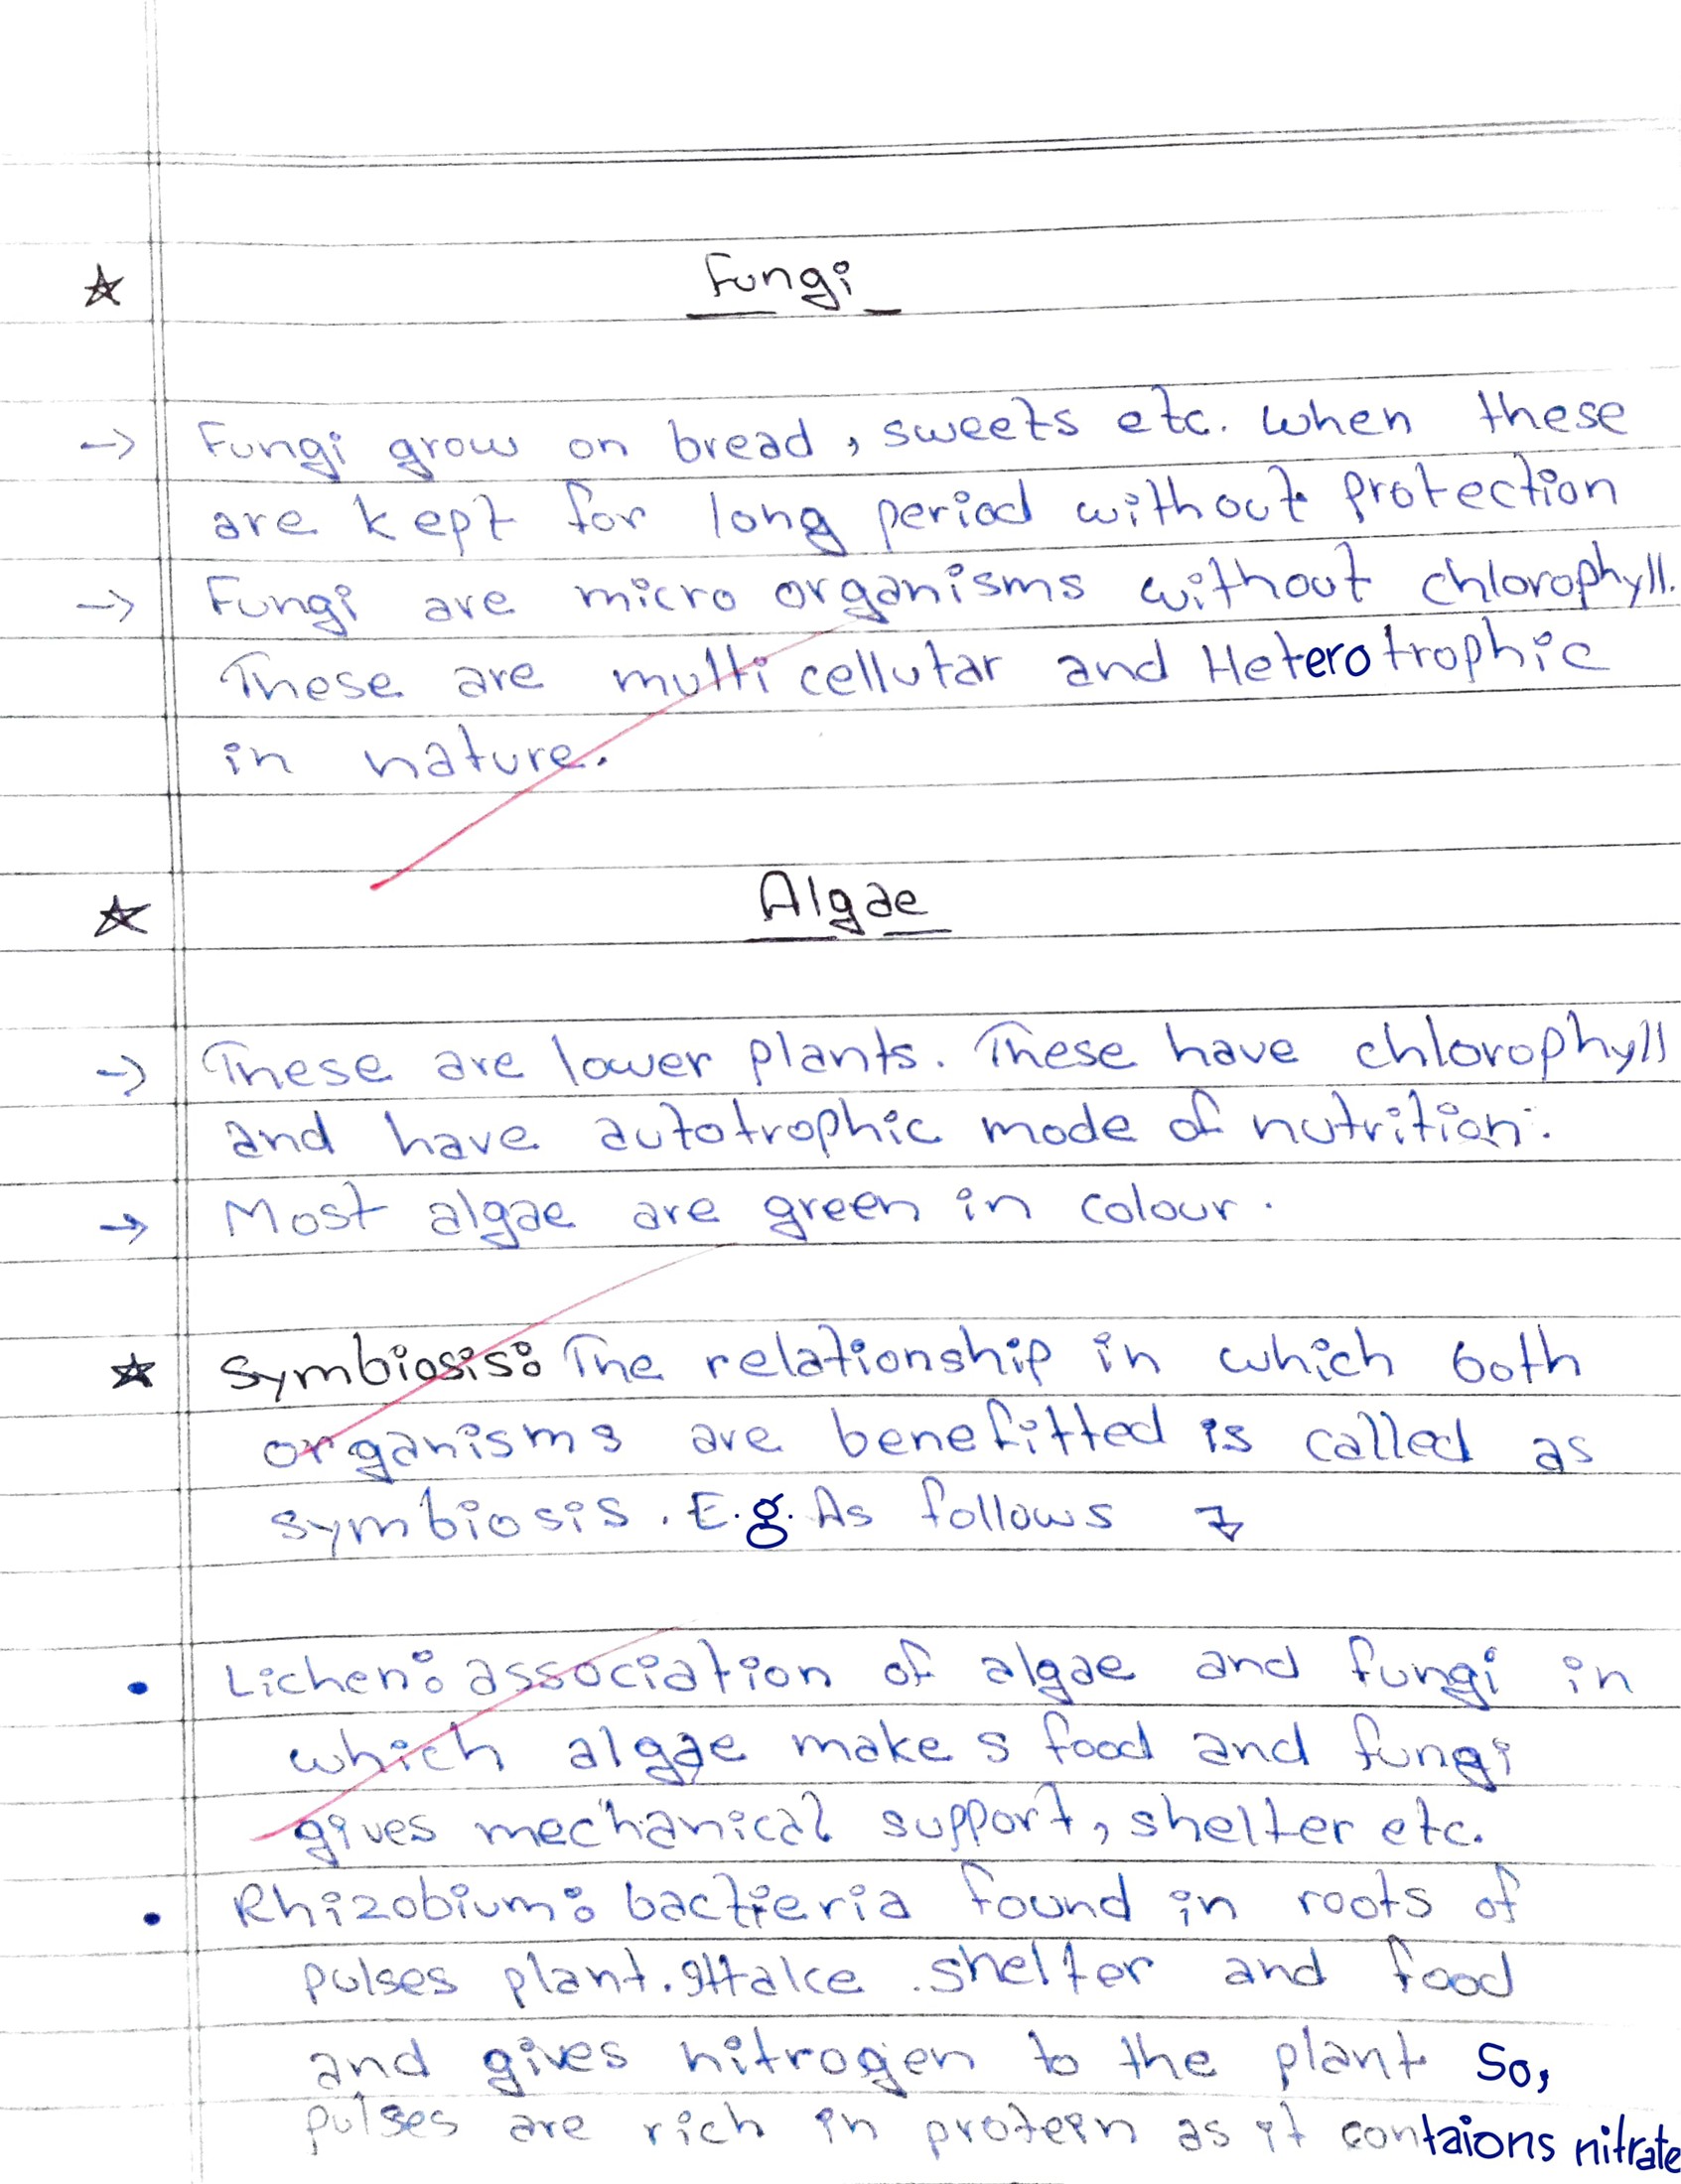 Fungi
Fungi grow on bread, sweets etc. when these
are kept for long period without protection
Fungi are micro organisms without chlorophyll.
These are multi cellutar and Heterotrophic
in nature.
Algae
These are lower plants. These have chlorophyll
and have autotrophic mode of nutrition.
Most algae are green in colour.
Symbiosis: The relationship in which both
organisms are benefitted is called as
symbiosis. E.g. As follows
Lichen: association of algae and fungi in
which algae makes food and fungi
gives mechanical support, shelter etc.
Rhizobium: bactieria found in roots of
pulses plant. It take shelter and food
and gives nitrogen to the plant so,
pulses are rich in protein as it contaions nitrate